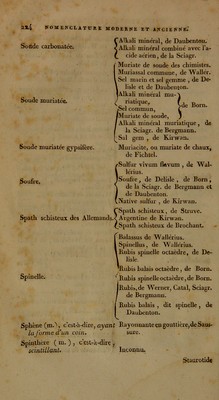 224 NOMENCLATURE MODERNE ET ANCIENNE.
Soude carbonatée.
Alkali minéral, de Daubenton.
Alkali minéral combiné avec l'a-
cide aérien, de la Sciagr.
Soude muriatée.
Muriate de soude des chimistes.
Muriasual commune, de Wallér.
Sel marin et sel gemme, de De-
lisle et de Daubenton.
Alkali minéral mu-
riatique,
Sel commun,
Muriate de soude,
de Born.
Alkali minéral muriatique, de
la Sciagr. de Bergmann.
Sal gem, de Kirwan.
Soude muriatée gypsifère.
Muriacite, ou muriate de chaux,
de Fichtel.
Soufre.
Sulfur vivum flavum, de Wal-
lérius.
Soufre, de Delisle, de Born,
de la Sciagr. de Bergmann et
de Daubenton.
Native sulfur, de Kirwan.
Spath schisteux des Allemands.
Spath schisteux, de Struve.
Argentine de Kirwan.
Spath schisteux de Brochant.
Spinelle.
Balassus de Wallérius.
Spinellus, de Wallérius.
Rubis spinelle octaèdre, de De-
lisle.
Rubis balais octaèdre, de Born.
Rubis spinelle octaèdre, de Born.
Rubis, de Werner, Catal, Sciagr.
de Bergmann.
Rubis balais, dit spinelle, de
Daubenton.
Sphène (m.), c'est-à-dire, ayant
la forme d'un coin.
Rayonnante en gouttière, de Saus-
sure.
Spinthère (m.), c'est-à-dire,
scintillant.
Inconnu.
Staurotide